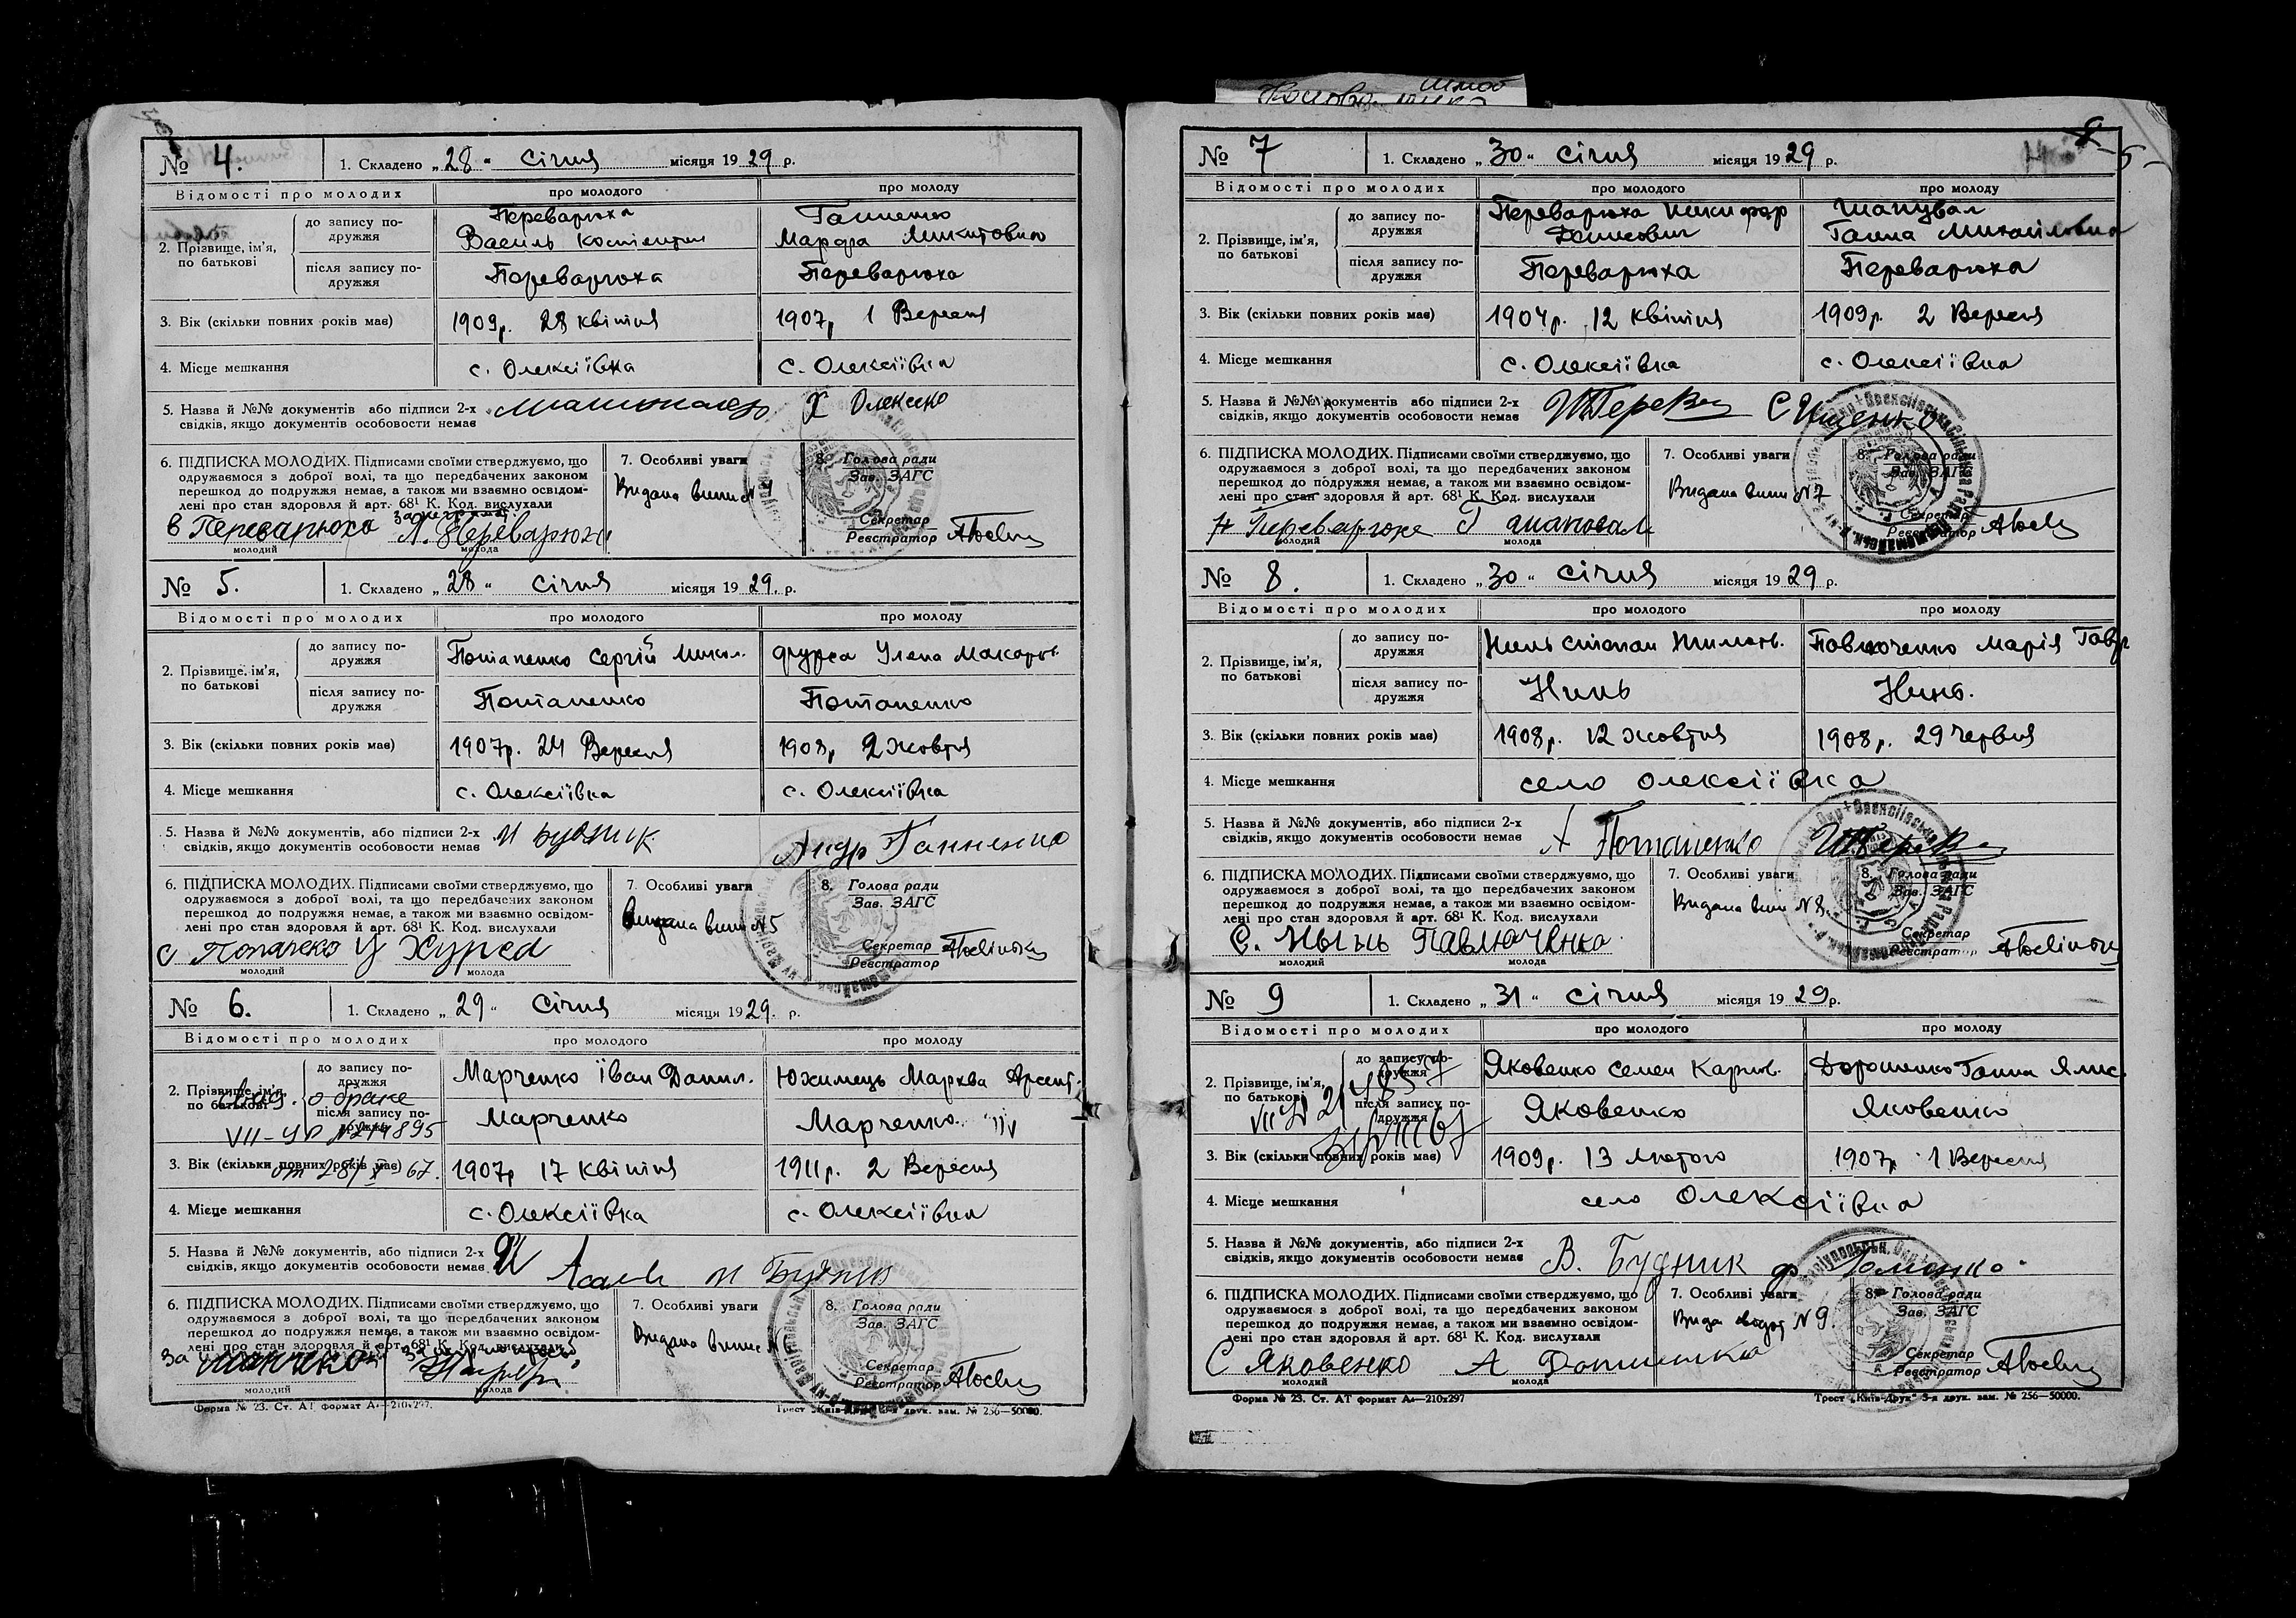 № 4. 1. Складено „28“ Січня місяця 1929 р.
Відомості про молодих про молодого про молоду
2. Прізвище, ім’я, по батькові
до запису по-дружжя
Переварюха Ганненко
Василь Костянтин Марфа Микитовна
після запису по-дружжя Переварюха Переварюха
3. Вік (скільки повних років має) 1909р. 28 квітня 1907р 1 Вересня
4. Місце мешкання с. Олексіївка с. Олексіївка
5. Назва й №№ документів або підписи 2-х
свідків, якщо документів особовости немає
Х Олексено
6. ПІДПИСКА МОЛОДИХ. Підписами своїми стверджуємо, що
одружаємося з доброї волі, та що передбачених законом
перешкод до подружжя немає, а також ми взаємно освідом-
лені про стан здоровля й арт. 68¹ К. Код. вислухали
7. Особливі уваги
Видана випис N 4
8. Голова ради
Зав. ЗАГС
Секретар
Реєстратор
в Переварюха Переварюха
молодий молода
№ 5. 1. Складено „28“ Січня місяця 1929. р.
Відомості про молодих про молодого про молоду
2. Прізвище, ім’я, по батькові
до запису по-дружжя Потапенко Сергій Микол. Фурса Улена Макаров.
після запису по-дружжя Потапенко Потапенко
3. Вік (скільки повних років має) 1907р. 24 Вересня 1908р 2 жовтня
4. Місце мешкання с. Олексіївка с. Олексіївка
5. Назва й №№ документів, або підписи 2-х
свідків, якщо документів особовости немає
И Будник Андр Ганненко
6. ПІДПИСКА МОЛОДИХ. Підписами своїми стверджуємо, що
одружаємося з доброї волі, та що передбачених законом
перешкод до подружжя немає, а також ми взаємно освідом-
лені про стан здоровля й арт. 68¹ К. Код. вислухали
7. Особливі уваги
Видана випис N5
8. Голова ради
Зав. ЗАГС
Секретар
Реєстратор
С Потапеко У Хурса
молодий молода
№ 6. 1. Складено „29“ Січня місяця 1929. р.
Відомості про молодих про молодого про молоду
2. Прізвище, ім’я, по батькові
до запису по-дружжя Марченко Іван Данил. Юхимець Марква Арсент.
о браке
після запису по-дружжя Марченко Марченко.
VII-УР N 214895
3. Вік (скільки повних років має) 1907р 17 квітня 1911р. 2 Вересня
от 28/X 67.
4. Місце мешкання с. Олексіївка с. Олексіївка
5. Назва й №№ документів, або підписи 2-х
свідків, якщо документів особовости немає
И Будник
6. ПІДПИСКА МОЛОДИХ. Підписами своїми стверджуємо, що
одружаємося з доброї волі, та що передбачених законом
перешкод до подружжя немає, а також ми взаємно освідом-
лені про стан здоровля й арт. 68¹ К. Код. вислухали
7. Особливі уваги
Видана випис N
8. Голова ради
Зав. ЗАГС
Секретар
Реєстратор
за
молодий молода
Форма № 23. Ст. АТ формат А₄—210x297. Трест „Київ-Друк“ 3-я друк. зам. № 256—50000.
5
№ 7 1. Складено „30“ Січня місяця 1929 р.
Відомості про молодих про молодого про молоду
2. Прізвище, ім’я, по батькові
до запису по-дружжя
Переварюха Никифор Шаповал
Денисович Ганна Михайловна
після запису по-дружжя Переварюха Переварюха
3. Вік (скільки повних років має) 1904р. 12 квітня 1909р. 2 Вересня
4. Місце мешкання с. Олексіївка с. Олексіївка
5. Назва й №№ документів або підписи 2-х
свідків, якщо документів особовости немає
С Ищенко
6. ПІДПИСКА МОЛОДИХ. Підписами своїми стверджуємо, що
одружаємося з доброї волі, та що передбачених законом
перешкод до подружжя немає, а також ми взаємно освідом-
лені про стан здоровля й арт. 68¹ К. Код. вислухали
7. Особливі уваги
Видана випис N7
8. Голова ради
Зав. ЗАГС
Секретар
Реєстратор
Н Переварюха
молодий молода
№ 8. 1. Складено „30“ Січня місяця 1929 р.
Відомості про молодих про молодого про молоду
2. Прізвище, ім’я, по батькові
до запису по-дружжя Нинь Степан Павлюченко Марія Гавр
після запису по-дружжя Нинь Нинь.
3. Вік (скільки повних років має) 1908р. 12 жовтня 1908р. 29 червня
4. Місце мешкання село Олексіївка
5. Назва й №№ документів, або підписи 2-х
свідків, якщо документів особовости немає
Потапенко
6. ПІДПИСКА МОЛОДИХ. Підписами своїми стверджуємо, що
одружаємося з доброї волі, та що передбачених законом
перешкод до подружжя немає, а також ми взаємно освідом-
лені про стан здоровля й арт. 68¹ К. Код. вислухали
7. Особливі уваги
Видана випис N8.
8. Голова ради
Зав. ЗАГС
Секретар
Реєстратор
С. Нынь Павлюченко
молодий молода
№ 9 1. Складено „31“ Січня місяця 1929р.
Відомості про молодих про молодого про молоду
2. Прізвище, ім’я, по батькові
до запису по-дружжя Яковенко Семен Карпов. Дорошенко Ганна
після запису по-дружжя Яковенко Яковенко
3. Вік (скільки повних років має) 1909р. 13 лютого 1907р 1 Вересня
4. Місце мешкання село Олексіївка
5. Назва й №№ документів, або підписи 2-х
свідків, якщо документів особовости немає
В. Будник
6. ПІДПИСКА МОЛОДИХ. Підписами своїми стверджуємо, що
одружаємося з доброї волі, та що передбачених законом
перешкод до подружжя немає, а також ми взаємно освідом-
лені про стан здоровля й арт. 68¹ К. Код. вислухали
7. Особливі уваги
N 9.
8. Голова ради
Зав. ЗАГС
Секретар
Реєстратор
С Яковенко
молодий молода
Форма № 23. Ст. АТ формат А₄—210x297 Трест „Київ-Друк“ 3-я друк. зам. № 256—50000.